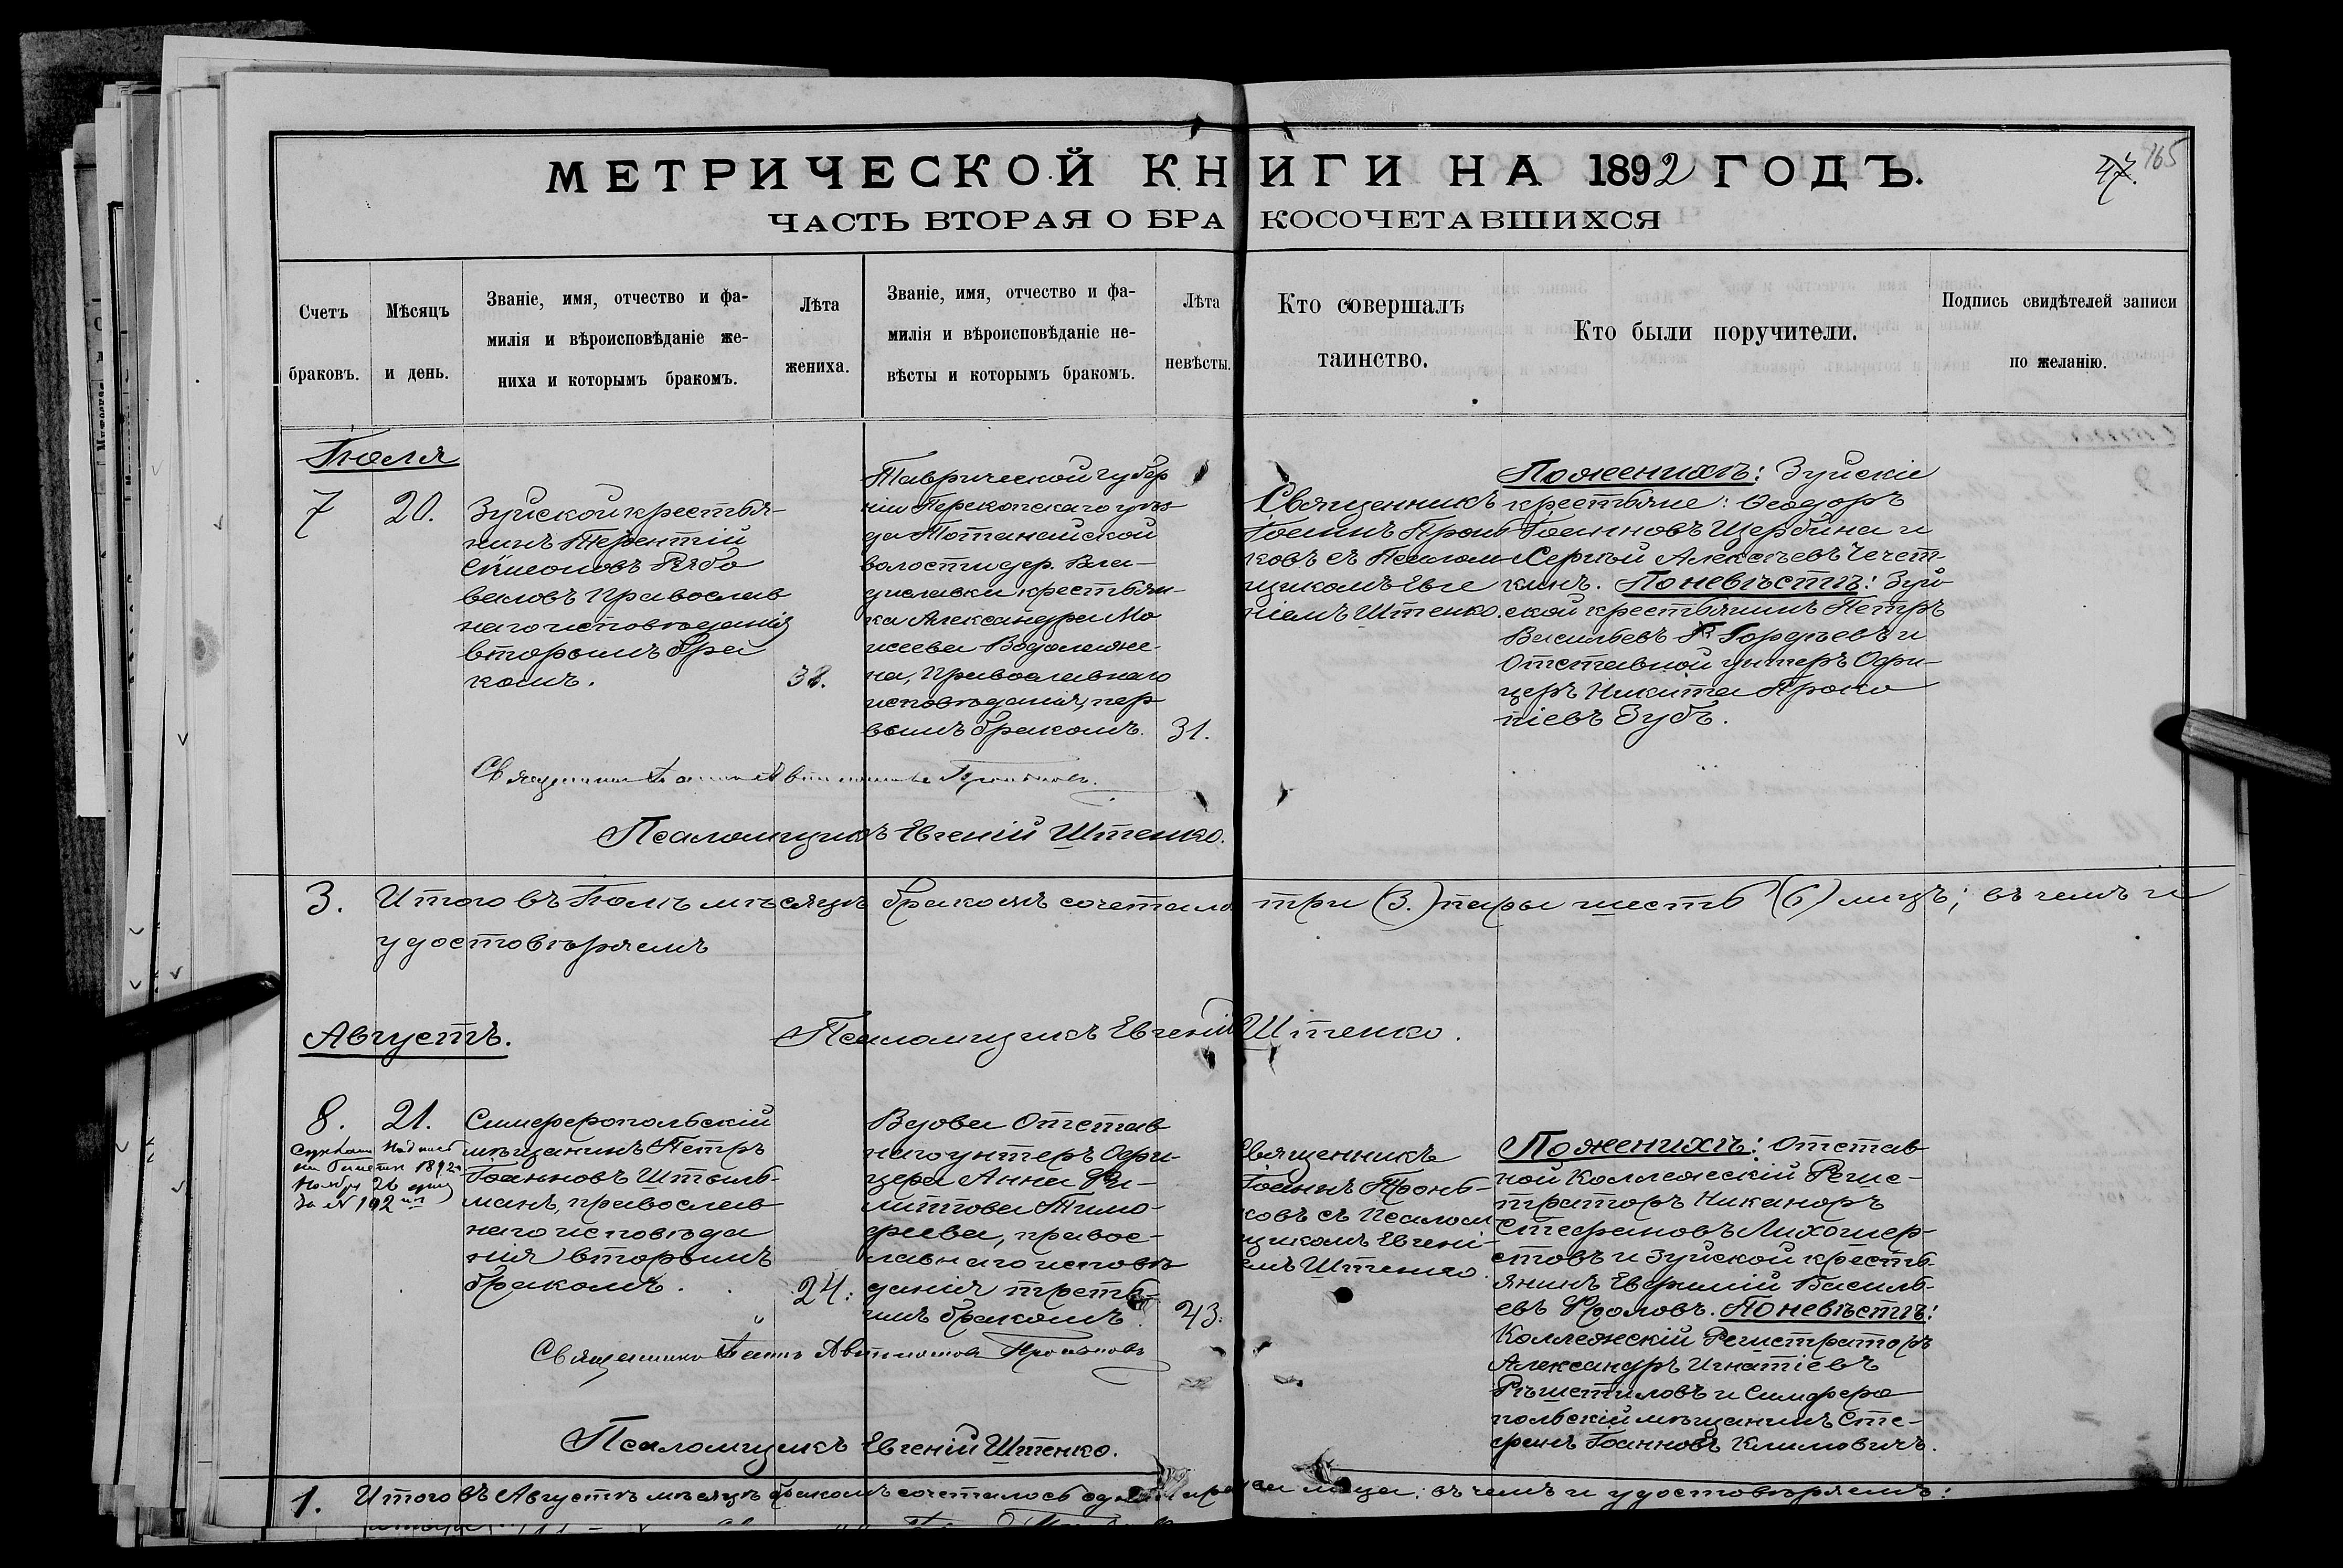 МЕТРИЧЕСКОЙ КНИГИ НА 1892 ГОДЪ.
47. 165
ЧАСТЬ ВТОРАЯ О БРАКОСОЧЕТАВШИХСЯ
Счетъ
браковъ.
Мѣсяцъ
и день.
Званіе, имя, отчество и фа-
милія и вѣроисповѣданіе же-
ниха и которымъ бракомъ.
Лѣта
жениха.
Званіе, имя, отчество и фа-
милія и вѣроисповѣданіе не-
вѣсты и которымъ бракомъ.
Лѣта
невѣсты.
Кто совершалъ
таинство.
Кто были поручители.
Подпись свидѣтелей записи
по желанію.
Іюля
7
20.
Зуйской крестья-
нинъ Терентій
Симеоновъ Рябо
валовъ Православ
наго исповѣданія
вторымъ бра
комъ.
38.
Таврической губер
ніи Перекопскаго уѣз-
да
волости дер. Вла-
диславки крестьян-
ка Александра Мо
исеева Водолажс-
ка, Православнаго
исповѣданія, пер
вымъ бракомъ.
31.
Священникъ
Іоаннъ Тронь
ковъ съ Псалом
щикомъ Евге
ніемъ Штенко.
По женихѣ: Зуйскіе
крестьяне: Ѳеодоръ
Іоанновъ Щербина и
Сергѣй Алексѣевъ Чечет-
кинъ. По невѣстѣ: Зуй
ской крестьянинъ Петръ
Васильевъ Гордѣевъ и
Отставной унтеръ Офи-
церъ Никита Проко
піевъ Зубъ.
Священникъ Іоаннъ Автономовъ Троньковъ.
Псаломщикъ Евгеній Штенко.
3. Итого въ Іюлѣ мѣсяцѣ бракомъ сочетало три (3.) пары шесть (6) лицъ; въ чемъ и
удостовѣряемъ
Псаломщикъ Евгеній Штенко.
Августъ.
8.
21.
на 1892
Ноября 26 дня
за № 192
Симферопольскій
мѣщанинъ Петръ
Іоанновъ Штыль-
манъ, православ
наго исповѣда
нія вторымъ
бракомъ.
24.
Вдова Отстав
наго унтеръ Офи-
цера Анна Фи-
липпова Тимо-
феева, правос-
лавнаго исповѣ
данія треть-
имъ бракомъ.
43.
Священникъ
Іоаннъ Тронь-
ковъ съ Псалом
щикомъ Евгені-
емъ Штенко
По женихѣ: Отстав
ной Коллежскій Регис-
траторъ Никаноръ
Стефановъ Лихошер-
стовъ и Зуйской кресть-
янинъ Евфимій Василь-
евъ Фроловъ. По невѣстѣ:
Коллежскій Регистраторъ
Александръ Игнатіевъ
Рѣшетиловъ и Симферо
польскій мѣщанинъ Сте-
фанъ Іоанновъ Климовичъ.
Священникъ Іоаннъ Автономовъ Троньковъ
Псаломщикъ Евгеній Штенко.
1. Итого въ Августѣ мѣсяцѣ бракомъ сочеталось одна пара лица; въ чемъ и удостовѣряемъ: